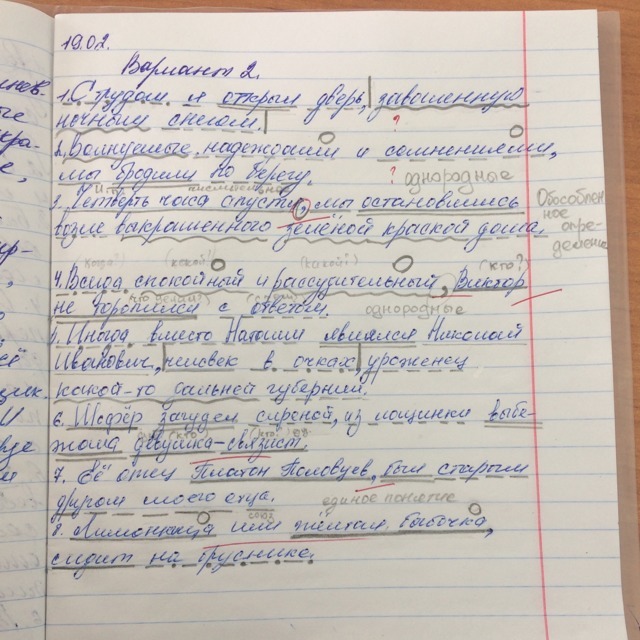 19.02.
Вариант 2.
1. С трудом я открыл дверь, завошенную
ночным снегом.
?
2. Волнуемые надеждами и сомнениями,
мы бродили по берегу.
? однородные
числительное
3. Четверть часа спустя, мы остановились
Обособлен
ное
опре-
деление
возле выкрашенного зелёной краской дома.
(какой?) (какой?) (кто?)
4. Всегда спокойный и рассудительный, Виктор
не торопился с ответом.
однородные
5. Иногда вместо Наташи являлся Николай
Иванович, человек в очках, уроженец
какой-то дальней губернии.
6. Шофёр загудел сиреной, из лощинки выбе-
жала девушка-связист.
7. Её отец Платон Половцев, был старым
другом моего отца.
единое понятие
союз
8. Лимонница или жёлтая бабочка,
сидит на бруснике.